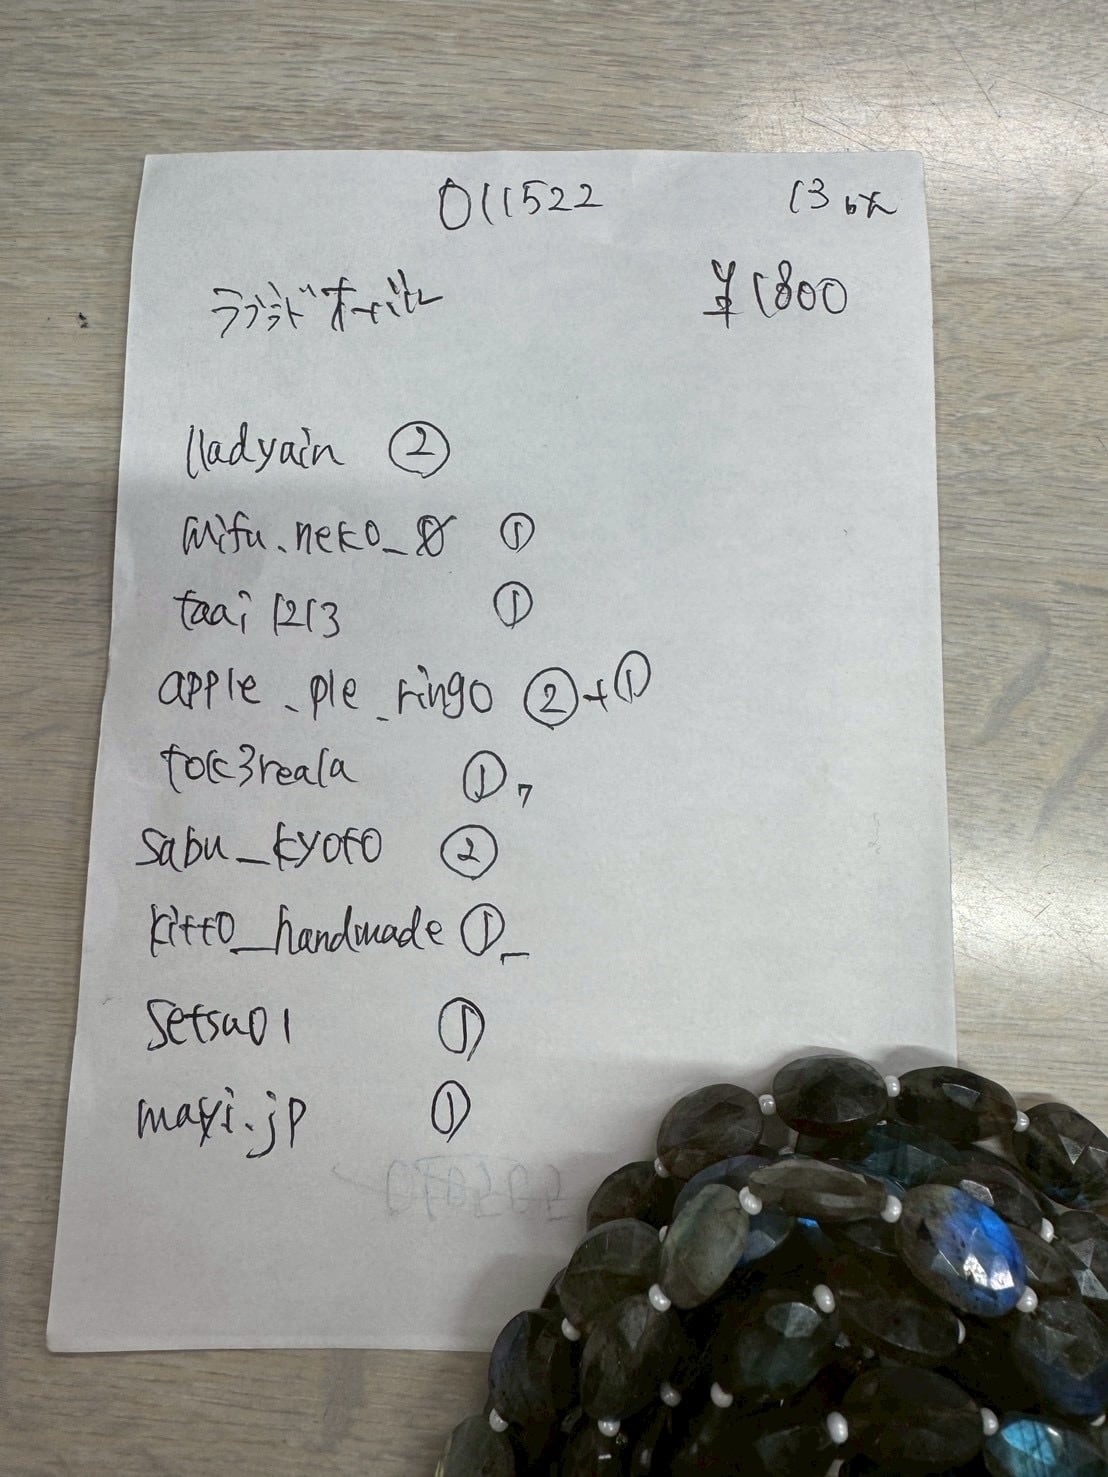 011522 13
ラブラド オーバル ¥1800
lladyain ②
mifu.neko_8 ①
taai1213 ①
apple_pie_ringo ②+①
①
sabu_kyoto ②
kitto_handmade ①
setsu01 ①
mayi.jp ①